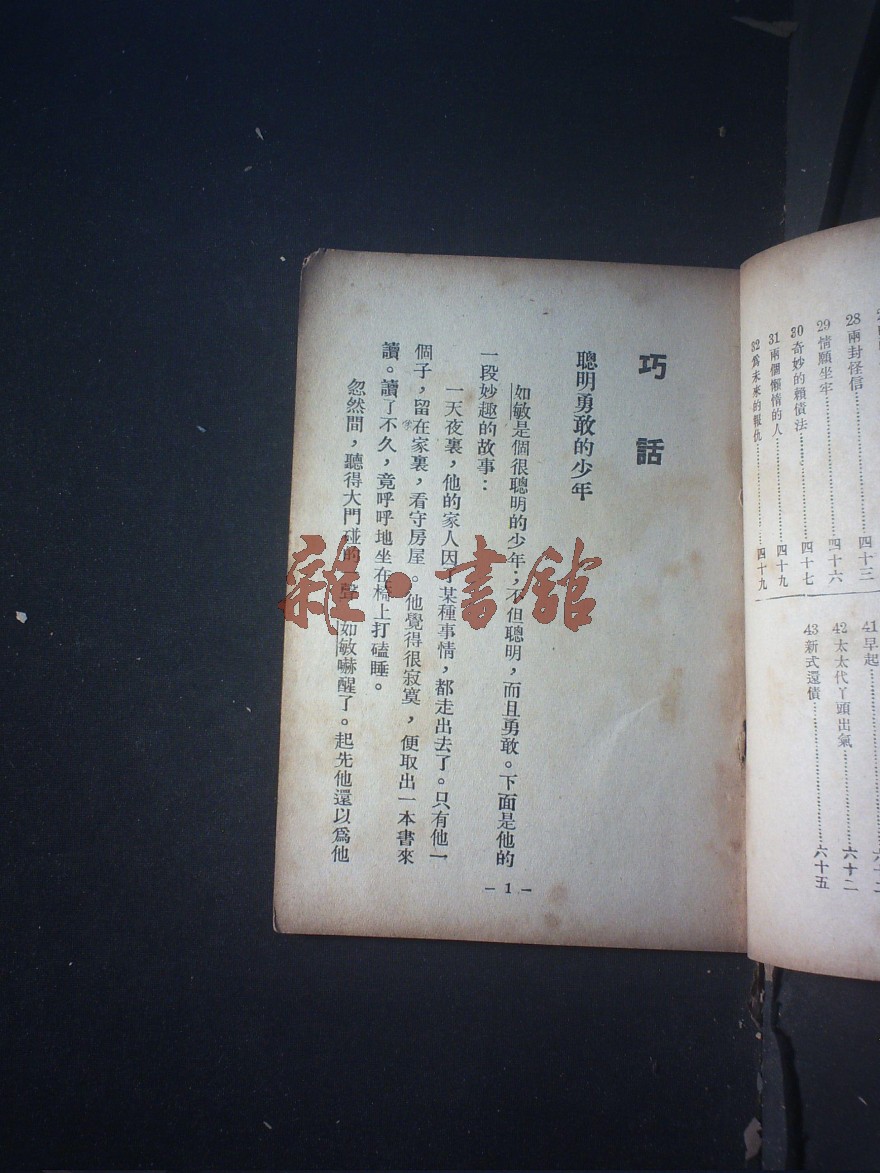 28 兩封怪信
29 情願坐牢…………四十三
30 奇妙的賴債法…………四十六
31 兩個懶惰的人…………四十七
32 爲未來的報仇…………四十九
41 早起
42 太太代丫頭出氣…………六十二
43 新式還債…………六十五
巧話
聰明勇敢的少年
如敏是個很聰明的少年;不但聰明,而且勇敢。下面是他的
一段妙趣的故事:
一天夜裏,他的家人因了某種事情,都走出去了。只有他一
個子,留在家裏,看守房屋。他覺得很寂寞,便取出一本書來
讀。讀了不久,竟呼呼地坐在椅上打磕睡。
忽然間,聽得大門碰的一聲,如敏嚇醒了。起先他還以爲他
- 1 -
雜·書館